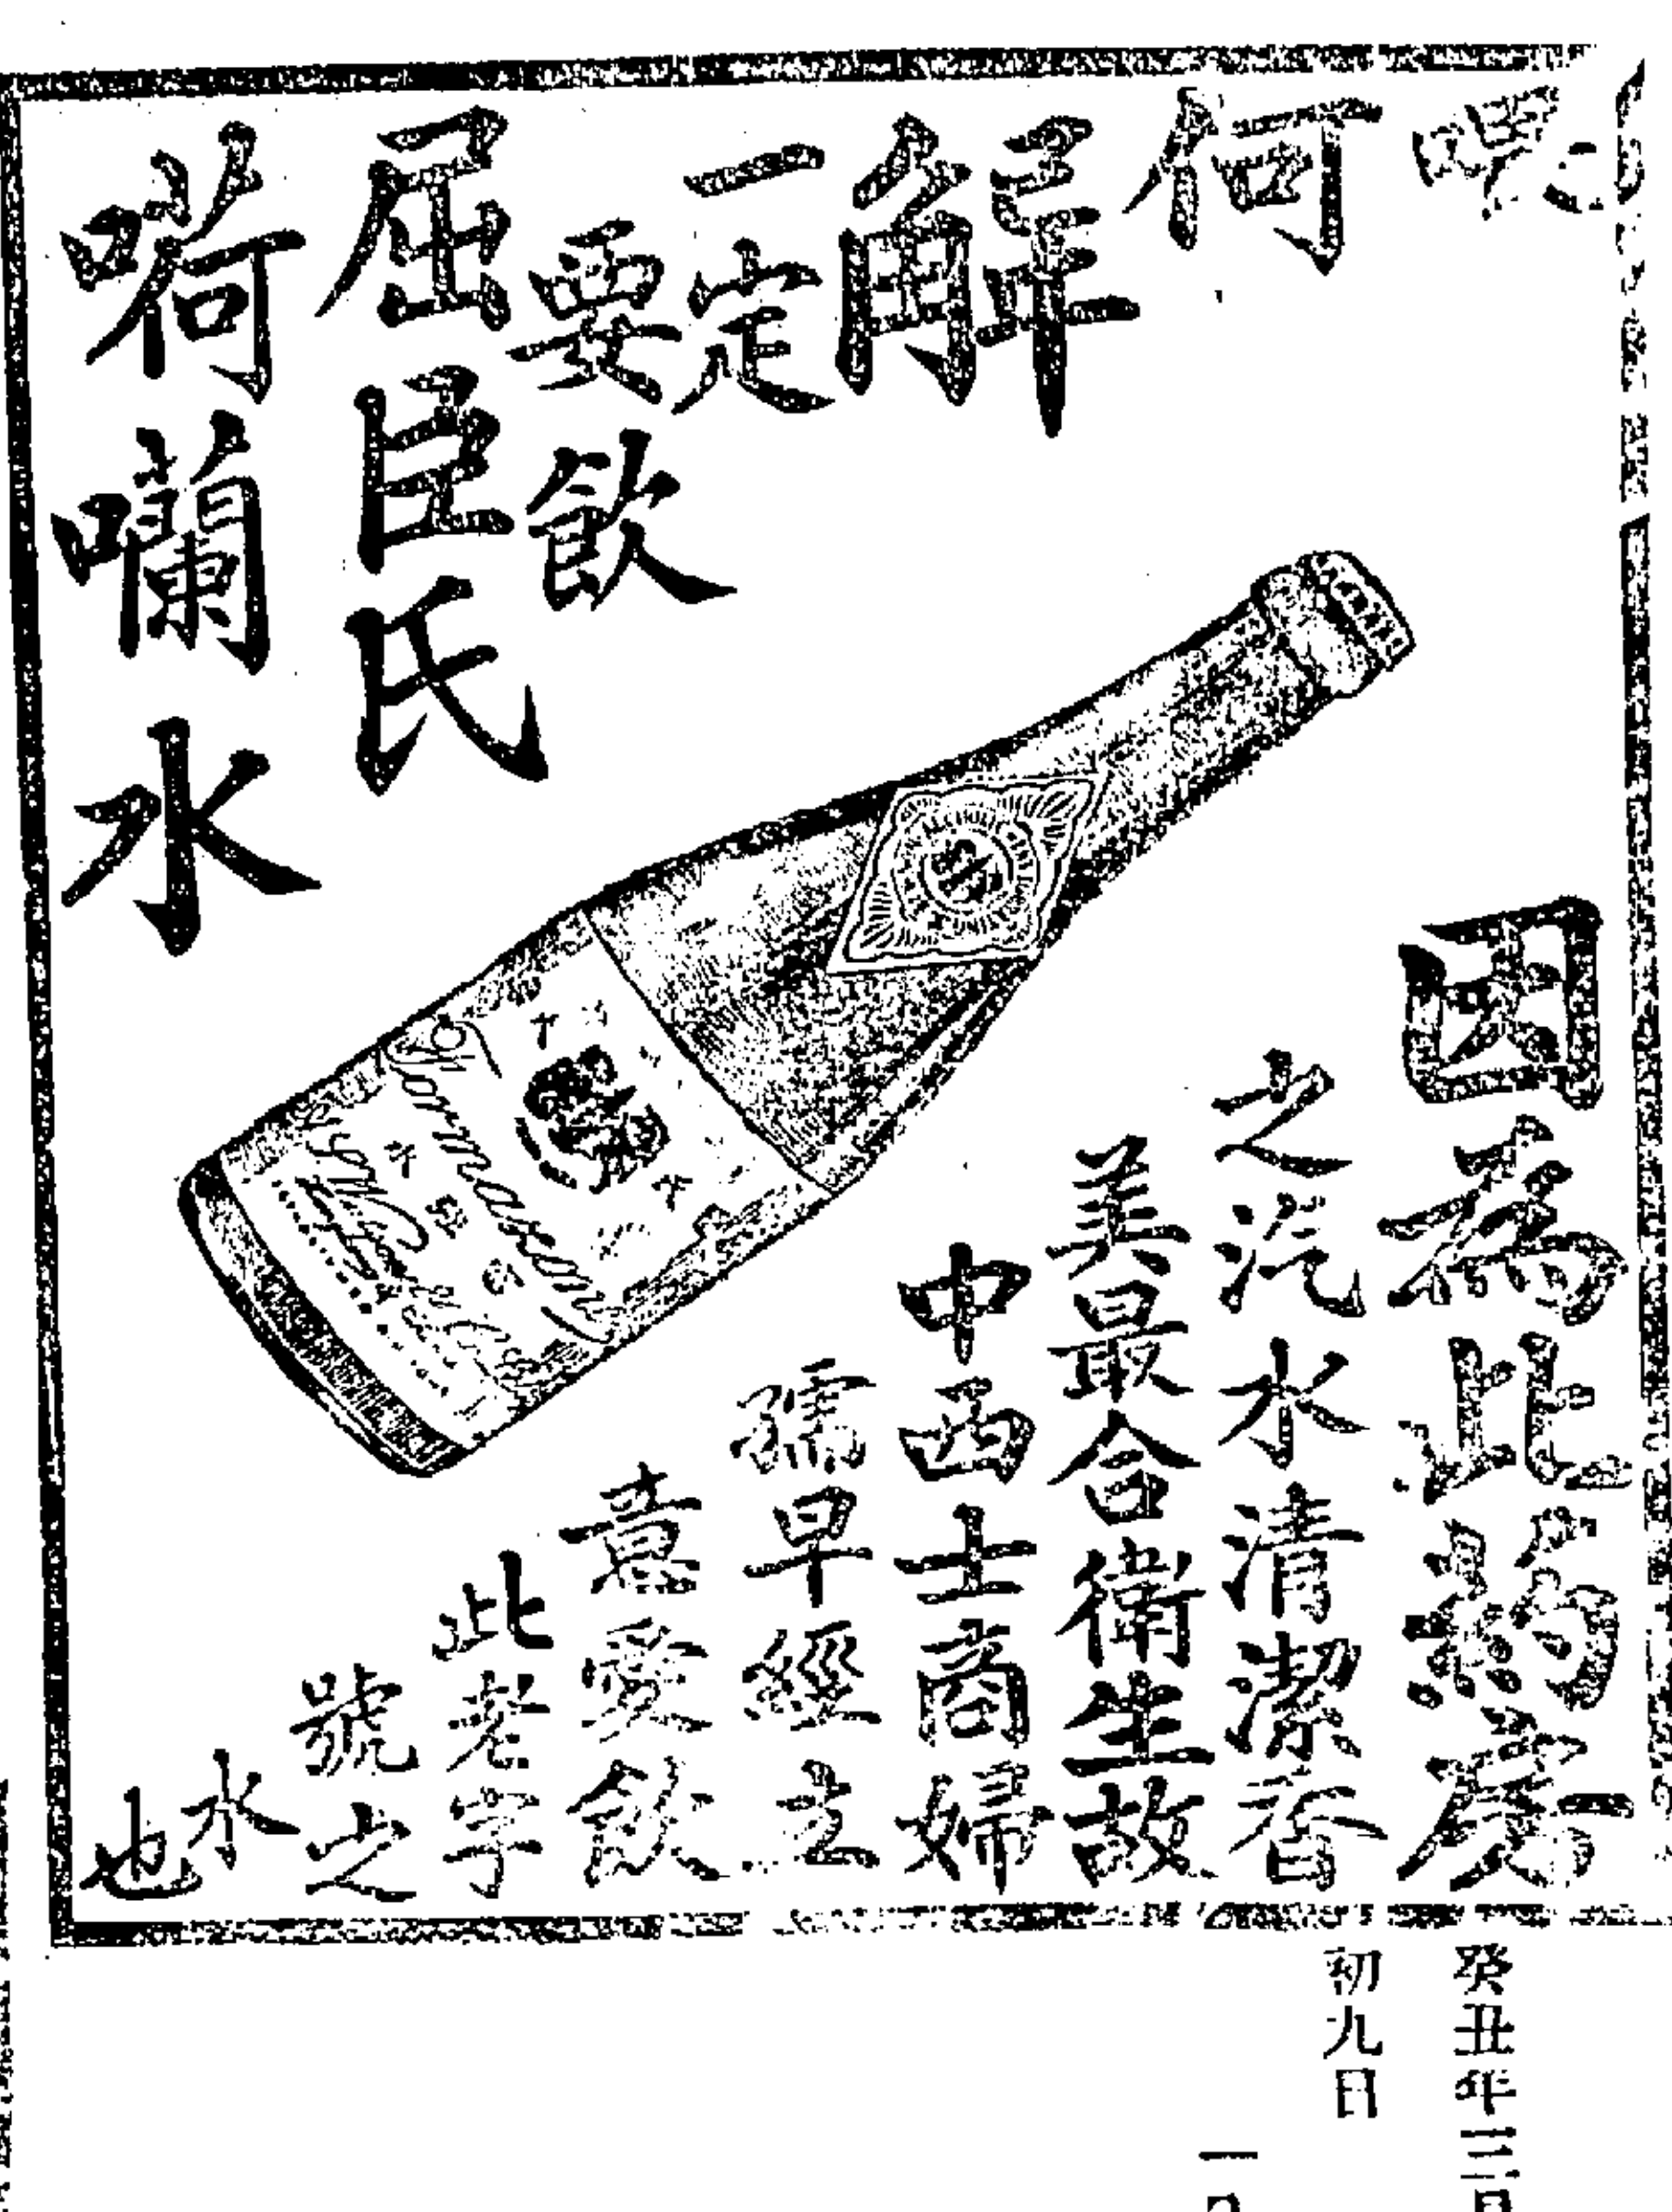 何
解
一定
要飲
屈臣氏
嗬囒水
因為此葯房
之汽水清潔香
美最合衛生故
中西士商婦
孺早經注
意愛飲
此老字
號之
水
也
Hormazon
癸丑年三月
初九日
一